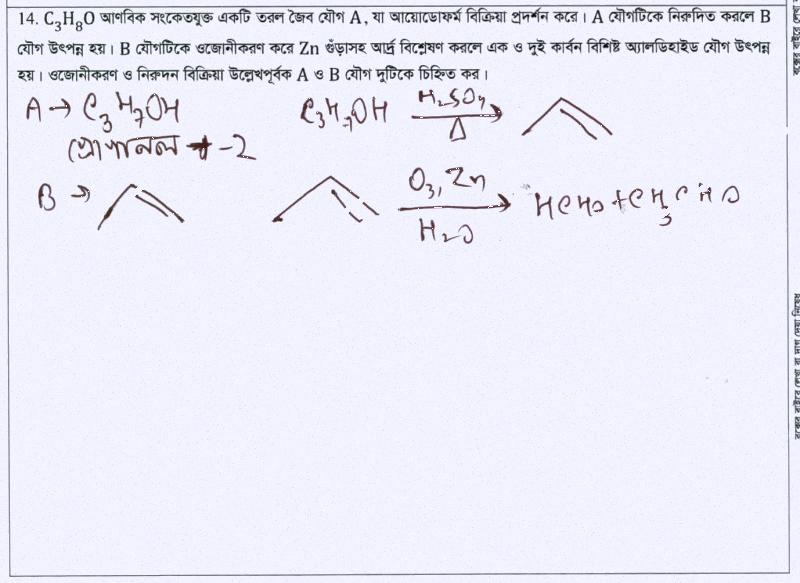 14. C₃H₈O আণবিক সংকেতযুক্ত একটি তরল জৈব যৌগ A, যা আয়োডোফর্ম বিক্রিয়া প্রদর্শন করে। A যৌগটিকে নিরুদিত করলে B
যৌগ উৎপন্ন হয়। B যৌগটিকে ওজোনীকরণ করে Zn গুঁড়াসহ আর্দ্র বিশ্লেষণ করলে এক ও দুই কার্বন বিশিষ্ট অ্যালডিহাইড যৌগ উৎপন্ন
হয়। ওজোনীকরণ ও নিরুদন বিক্রিয়া উল্লেখপূর্বক A ও B যৌগ দুটিকে চিহ্নিত কর।
A → C₃H₇OH C₃H₇OH H₂SO₄ Δ
প্রোপানল -2
B → O₃, Zn H₂O HCHO + CH₃CHO